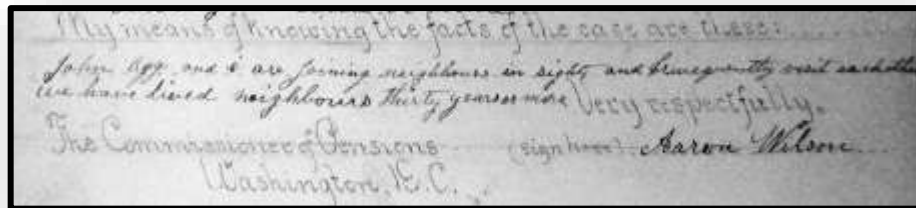 My means of knowing the facts of the case are these:
John Agg and i are joining neighbours in sight and frequently visit each other
we have lived neighbours thirty years or more Very respectfully,
The Commissioner of Pensions (sign here) Aaron Wilson
Washington, D.C.